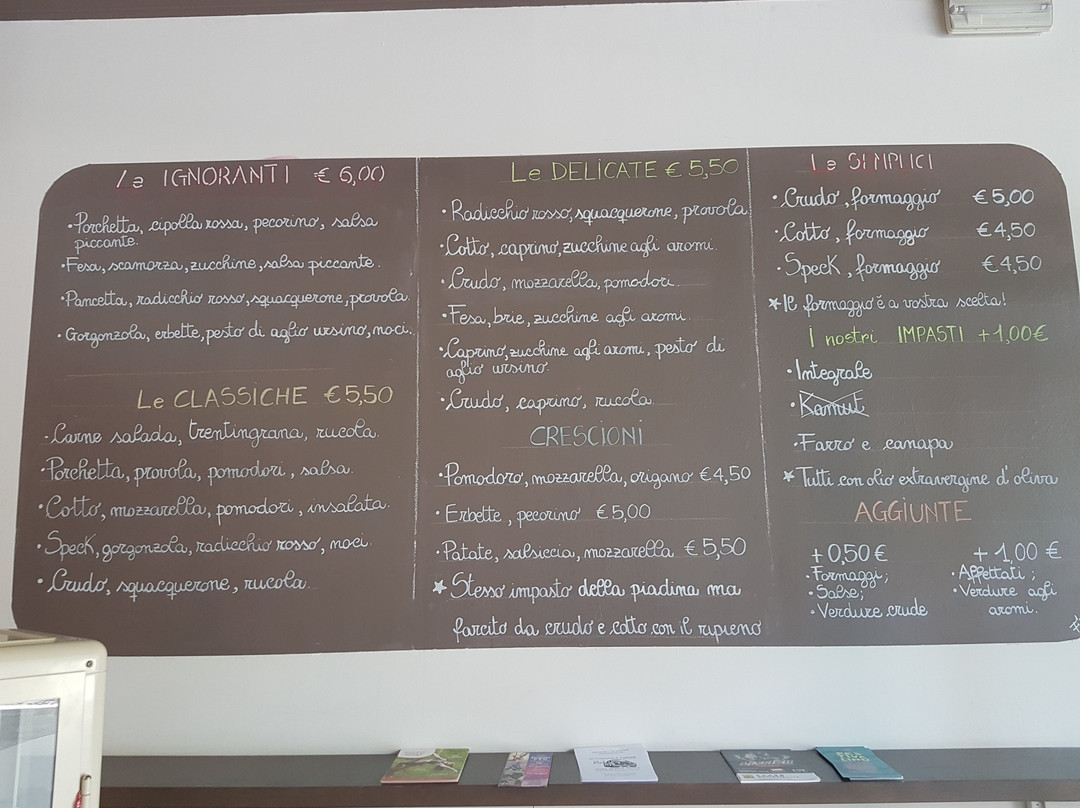 Le IGNORANTI € 6,00
• Porchetta, cipolla rossa, pecorino, salsa
piccante.
• Fesa, scamorza, zucchine, salsa piccante.
• Pancetta, radicchio rosso, squacquerone, provola.
• Gorgonzola, erbette, pesto di aglio ursino, noci.
Le CLASSICHE € 5,50
• Carne salada, trentingrana, rucola.
• Porchetta, provola, pomodori, salsa.
• Cotto, mozzarella, pomodori, insalata.
• Speck, gorgonzola, radicchio rosso, noci.
• Crudo, squacquerone, rucola.
Le DELICATE € 5,50
• Radicchio rosso, squacquerone, provola
• Cotto, caprino, zucchine agli aromi.
• Crudo, mozzarella, pomodori.
• Fesa, brie, zucchine agli aromi.
• Caprino, zucchine agli aromi, pesto di
aglio ursino.
• Crudo, caprino, rucola.
CRESCIONI
• Pomodoro, mozzarella, origano € 4,50
• Erbette, pecorino € 5,00
• Patate, salsiccia, mozzarella € 5,50
★ Stesso impasto della piadina ma
farcito da crudo e cotto con il ripieno
Le SEMPLICI
• Crudo, formaggio € 5,00
• Cotto, formaggio € 4,50
• Speck, formaggio € 4,50
★ Il formaggio è a vostra scelta!
I nostri IMPASTI +1,00€
• Integrale
• Kamut
• Farro e canapa
★ Tutti con olio extravergine d'oliva
AGGIUNTE
+0,50 €
• Formaggi;
• Salse;
• Verdure crude
+ 1,00 €
• Affettati;
• Verdure agli
aromi.